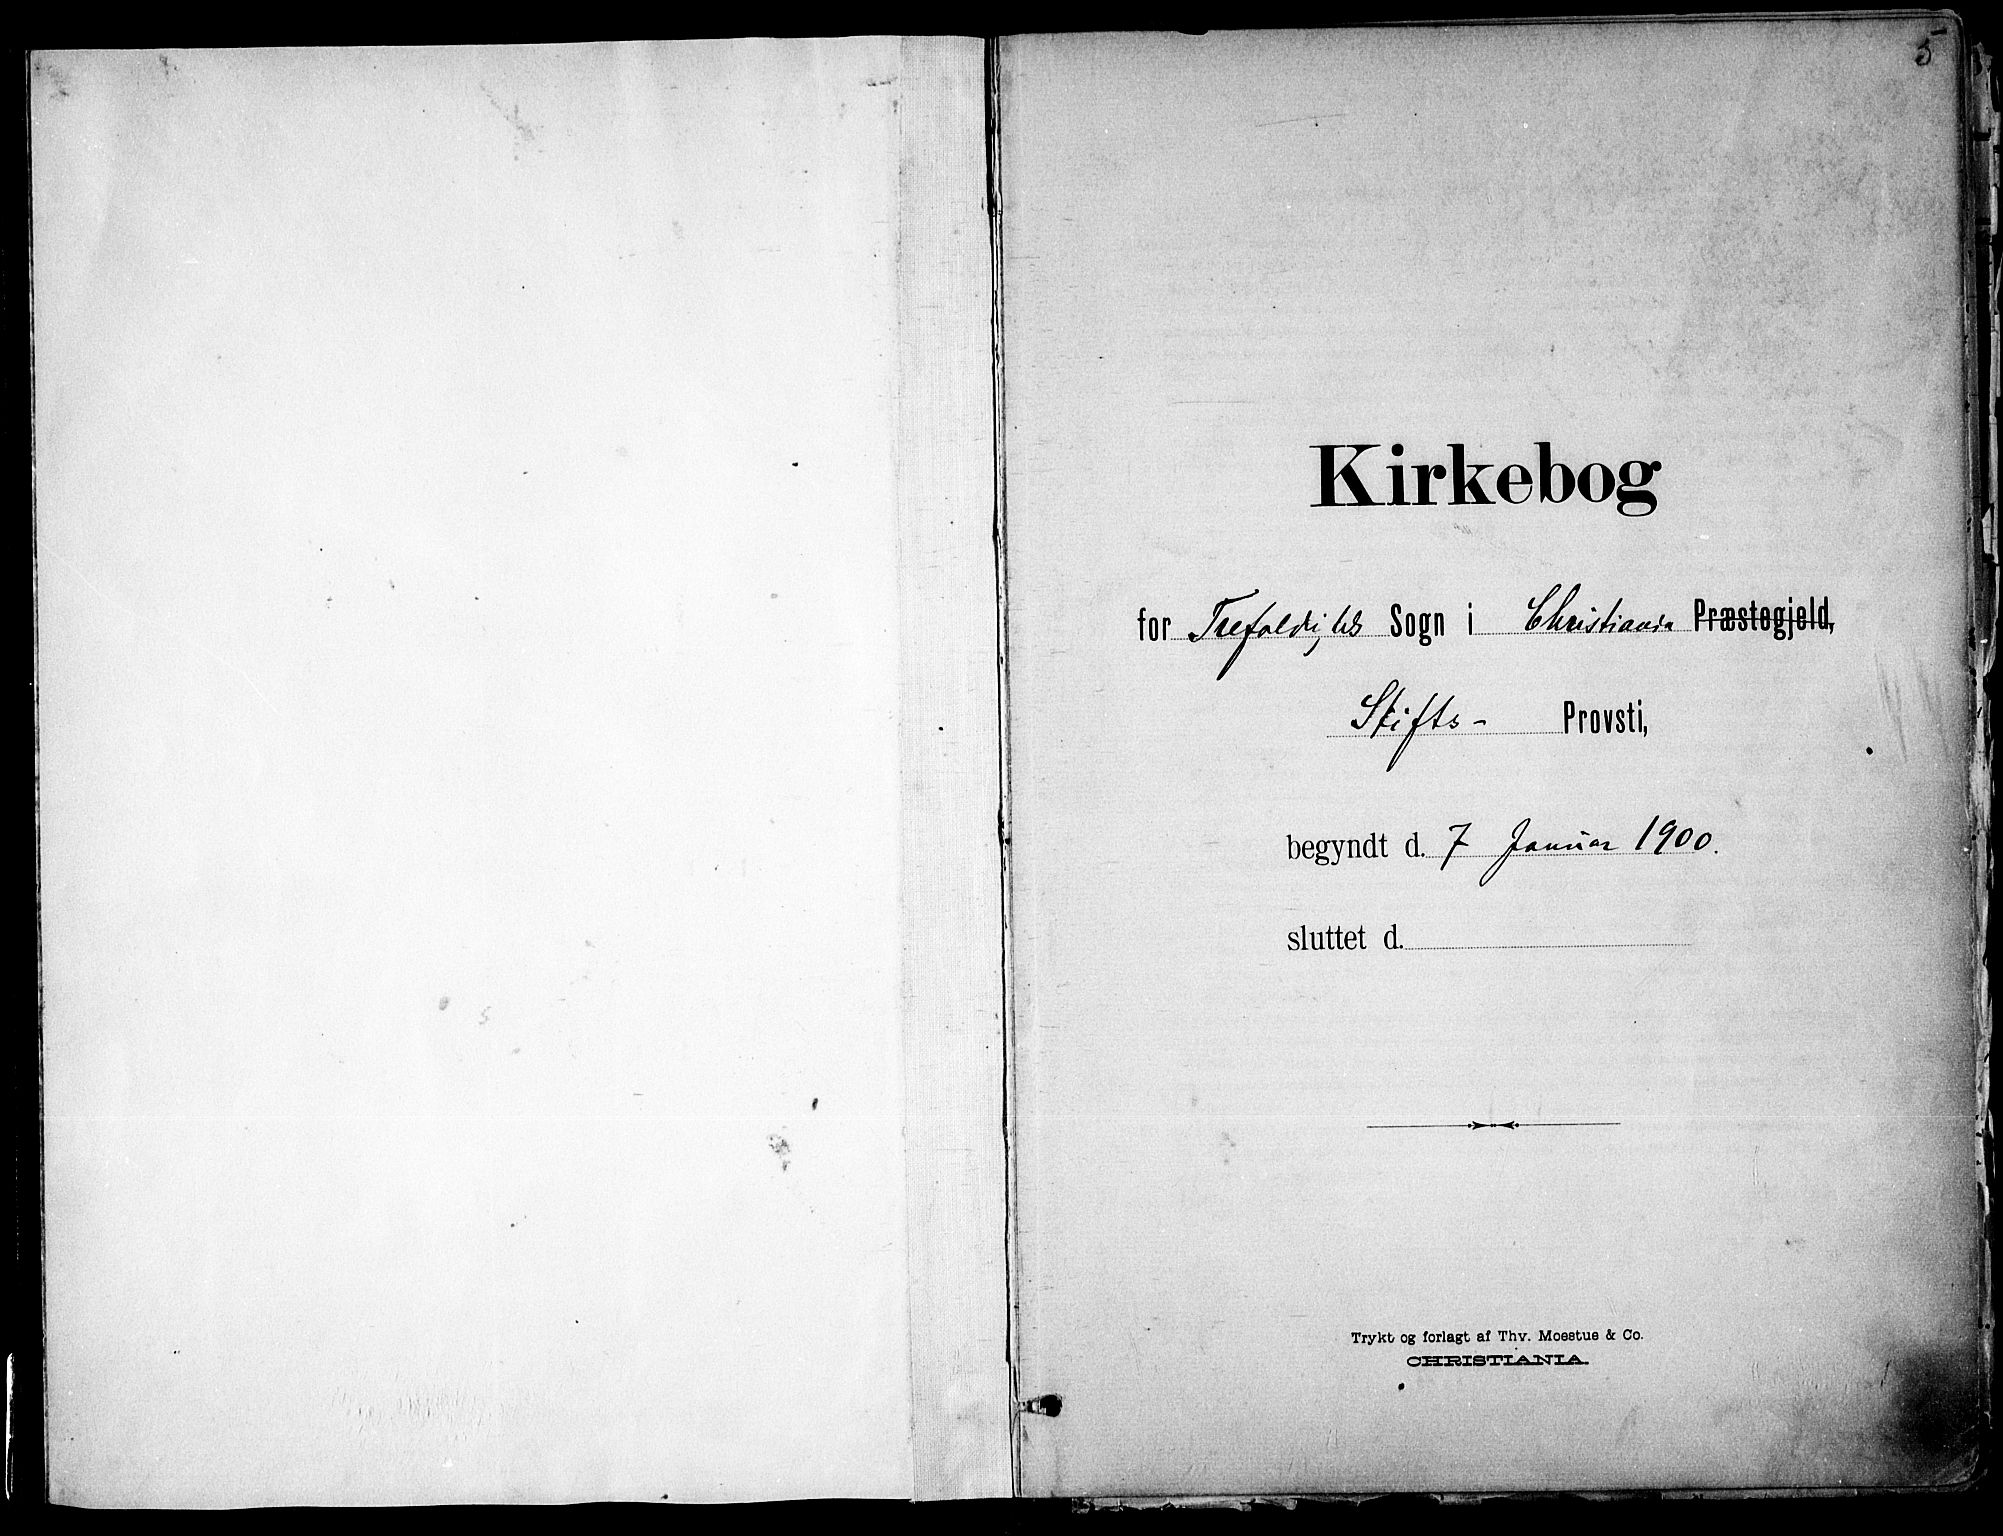 5
Kirkebog
for Trefoldigheds Sogn i Christiania Præstegjeld,
Stifts- Provsti,
begyndt d. 7 Januar 1900.
sluttet d.
Trykt og forlagt af Thv. Moestue & Co.
CHRISTIANIA.